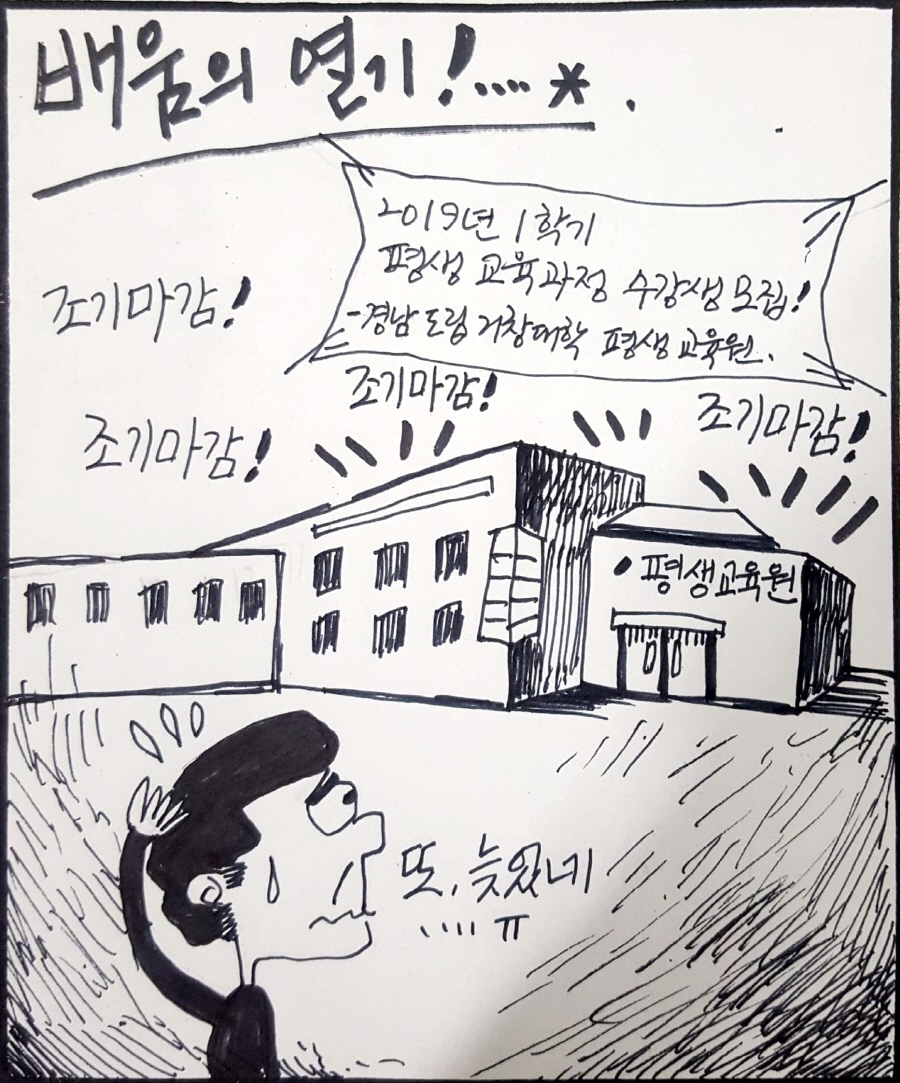 배움의 열기!....*.
2019년 1학기
평생 교육과정 수강생 모집!
-경남도립거창대학 평생교육원.
조기마감!
조기마감!
조기마감!
조기마감!
•평생교육원
또, 늦었네
....ㅠ